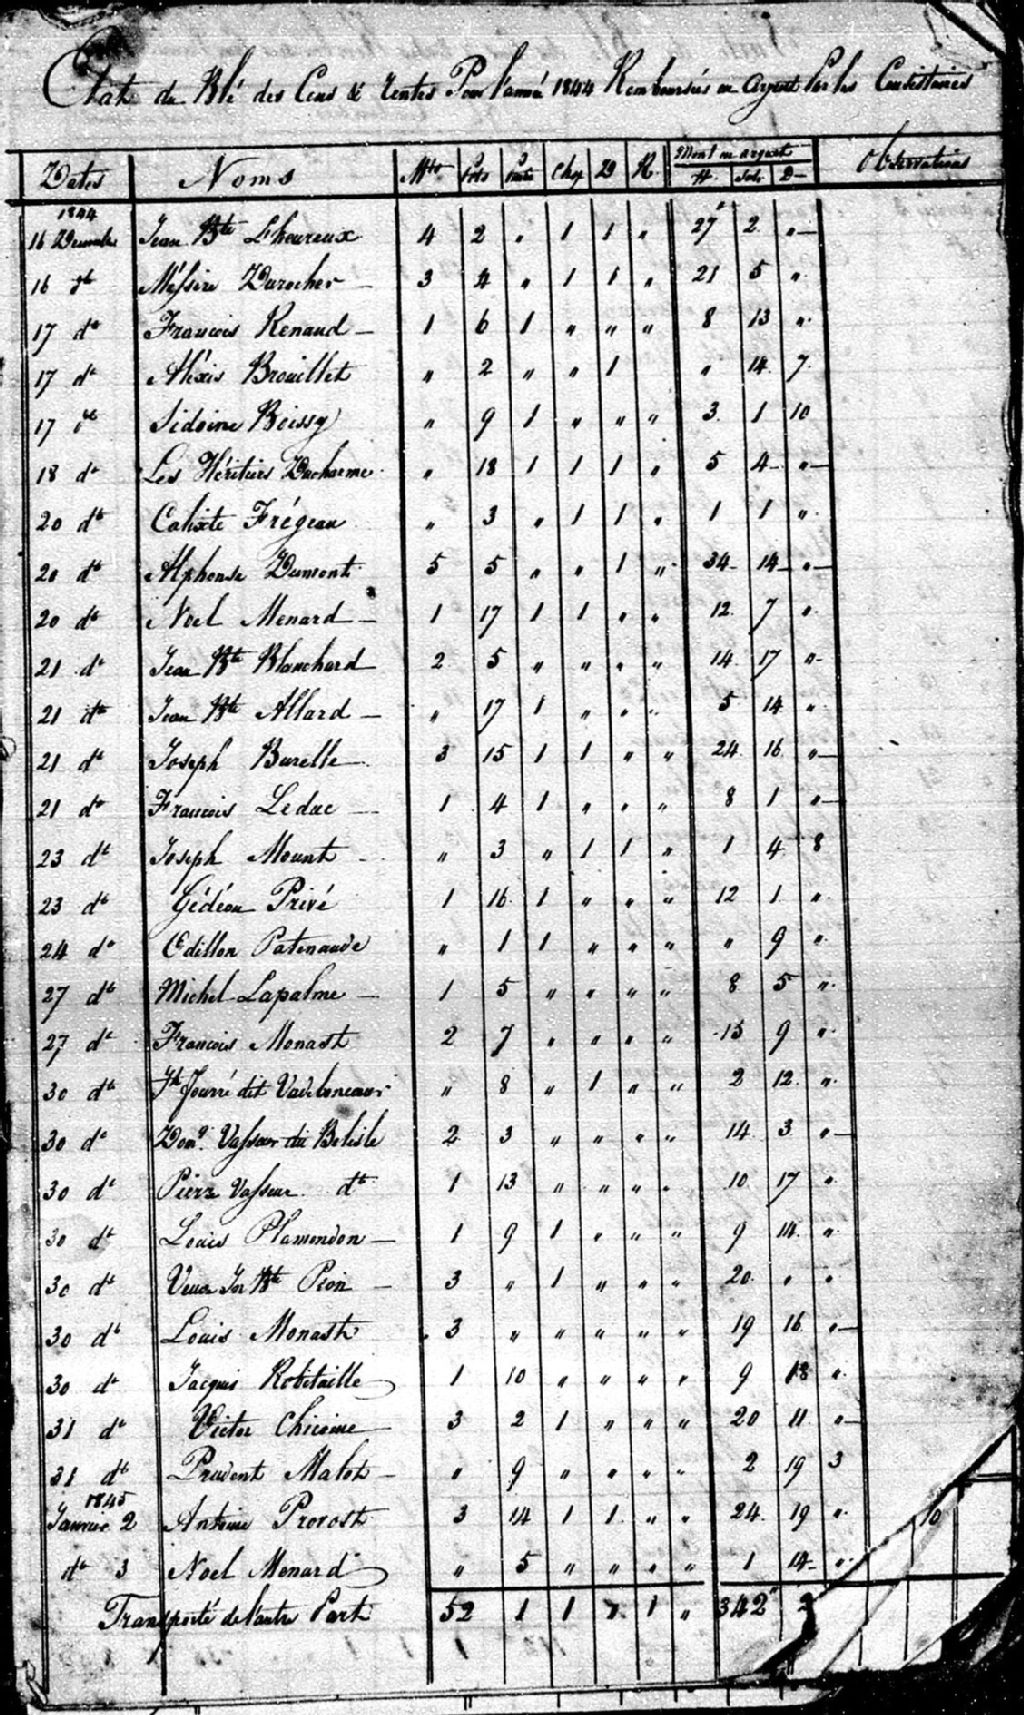 Etat du Blé des Cens & Rentes Pour l'année 1844 Remboursés en Argent Par les Censitaires
Dates Noms Mts Pots Chop D R Mont en argent Observations
# Sols D
1844
16 Decembre Jean Bte Lheureux 4 2 " 1 1 " 27 2 "
16 do Messire Durocher 3 4 " 1 1 " 21 5 "
17 do Francois Renaud 1 6 1 " " " 8 13 "
17 do Alexis Brouillet " 2 " " 1 " 14 7
17 do Sidoine Boissy " 9 1 " " " 3 1 10
18 do Les Héritiers Ducharme " 18 1 1 1 " 5 4 "
20 do Calixte Frégeau " 3 " 1 1 " 1 1 "
20 do Alphonse Dumont 5 5 " " 1 " 34 14 "
20 do Noel Menard 1 17 1 1 " " 12 7 "
21 do Jean Bte Blanchard 2 5 " " " " 14 17 "
21 do Jean Bte Allard " 17 1 " " " 5 14 "
21 do Joseph Burelle 3 15 1 1 " " 24 16 "
21 do Francois Leduc 1 4 1 " " " 8 1 "
23 do Joseph Mount " 3 " 1 1 " 1 4 8
23 do Gédéon Privé 1 16 1 " " " 12 1 "
24 do Edillon Patenaude " 1 1 " " " " 9 "
27 do Michel Lapalme 1 5 " " " " 8 5 "
27 do Francois Monast 2 7 " " " " 15 9 "
30 do Jh dit " 8 " 1 " " 2 12 "
30 do Vasseur dit Belisle 2 3 " " " " 14 3 "
30 do Pierre Vasseur do 1 13 " " " " 10 17 "
30 do Louis Plamondon 1 9 1 " " " 9 14 "
30 do Veuve Jn Bte Pion 3 " 1 " " " 20 " "
30 do Louis Monast 3 " " " " " 19 16 "
30 do Jacques Robitaille 1 10 " " " " 9 18 "
31 do Victor Chicoine 3 2 1 " " " 20 11 "
31 do Prudent Malot " 9 " " " " 2 19 3
1845
Janvier 2 Antoine Provost 3 14 1 1 " " 24 19 " 10
do 3 Noel Menard " 5 " " " " 1 14 "
Transporté de l'autre Part 52 1 1 1 " 342 2